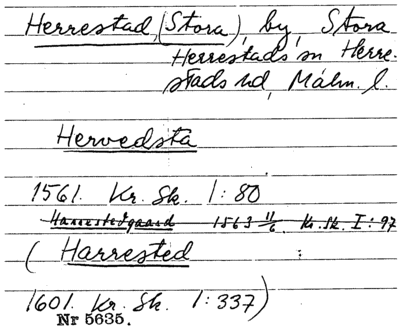 Herrestad, (Stora), by, Stora
Herrestads sn Herre-
stads hd, Malm. l.
Hervedsta
1561. Kr. Sk. 1:80
Harrestedgaard 1563 11/6. Kr. Sk. I:97
(Harrested :
1601. Kr. Sk. 1:337)
Nr 5635.